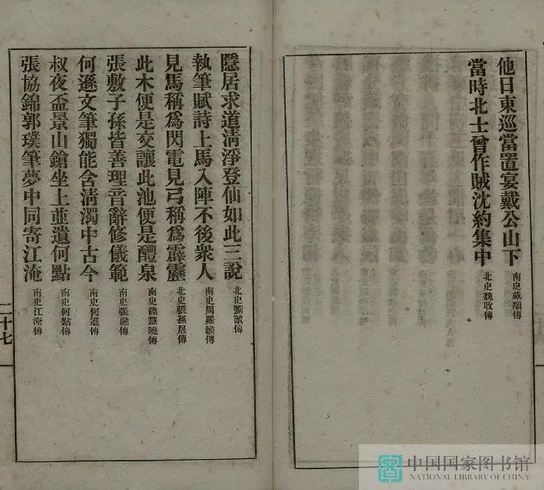 他日東巡當置宴戴公山下 南史戴顒傳
當時北士曾作賊沈約集中 北史魏收傳
隱居求道清淨登仙如此三說 北史
執筆賦詩上馬入陣不後衆人 南史周羅睺傳
見馬稱爲閃電見弓稱爲霹靂 北史長孫晟傳
此木便是交讓此池便是醴泉 南史陸慧曉傳
張敷子孫皆善理音辭修儀範 南史張敷傳
何遜文筆獨能含清濁中古今 南史何遜傳
叔夜盃景山鎗坐上並遺何點 南史何點傳
張協錦郭璞筆夢中同寄江淹 南史江淹傳
二十七
中国国家图书馆
NATIONAL LIBRARY OF CHINA